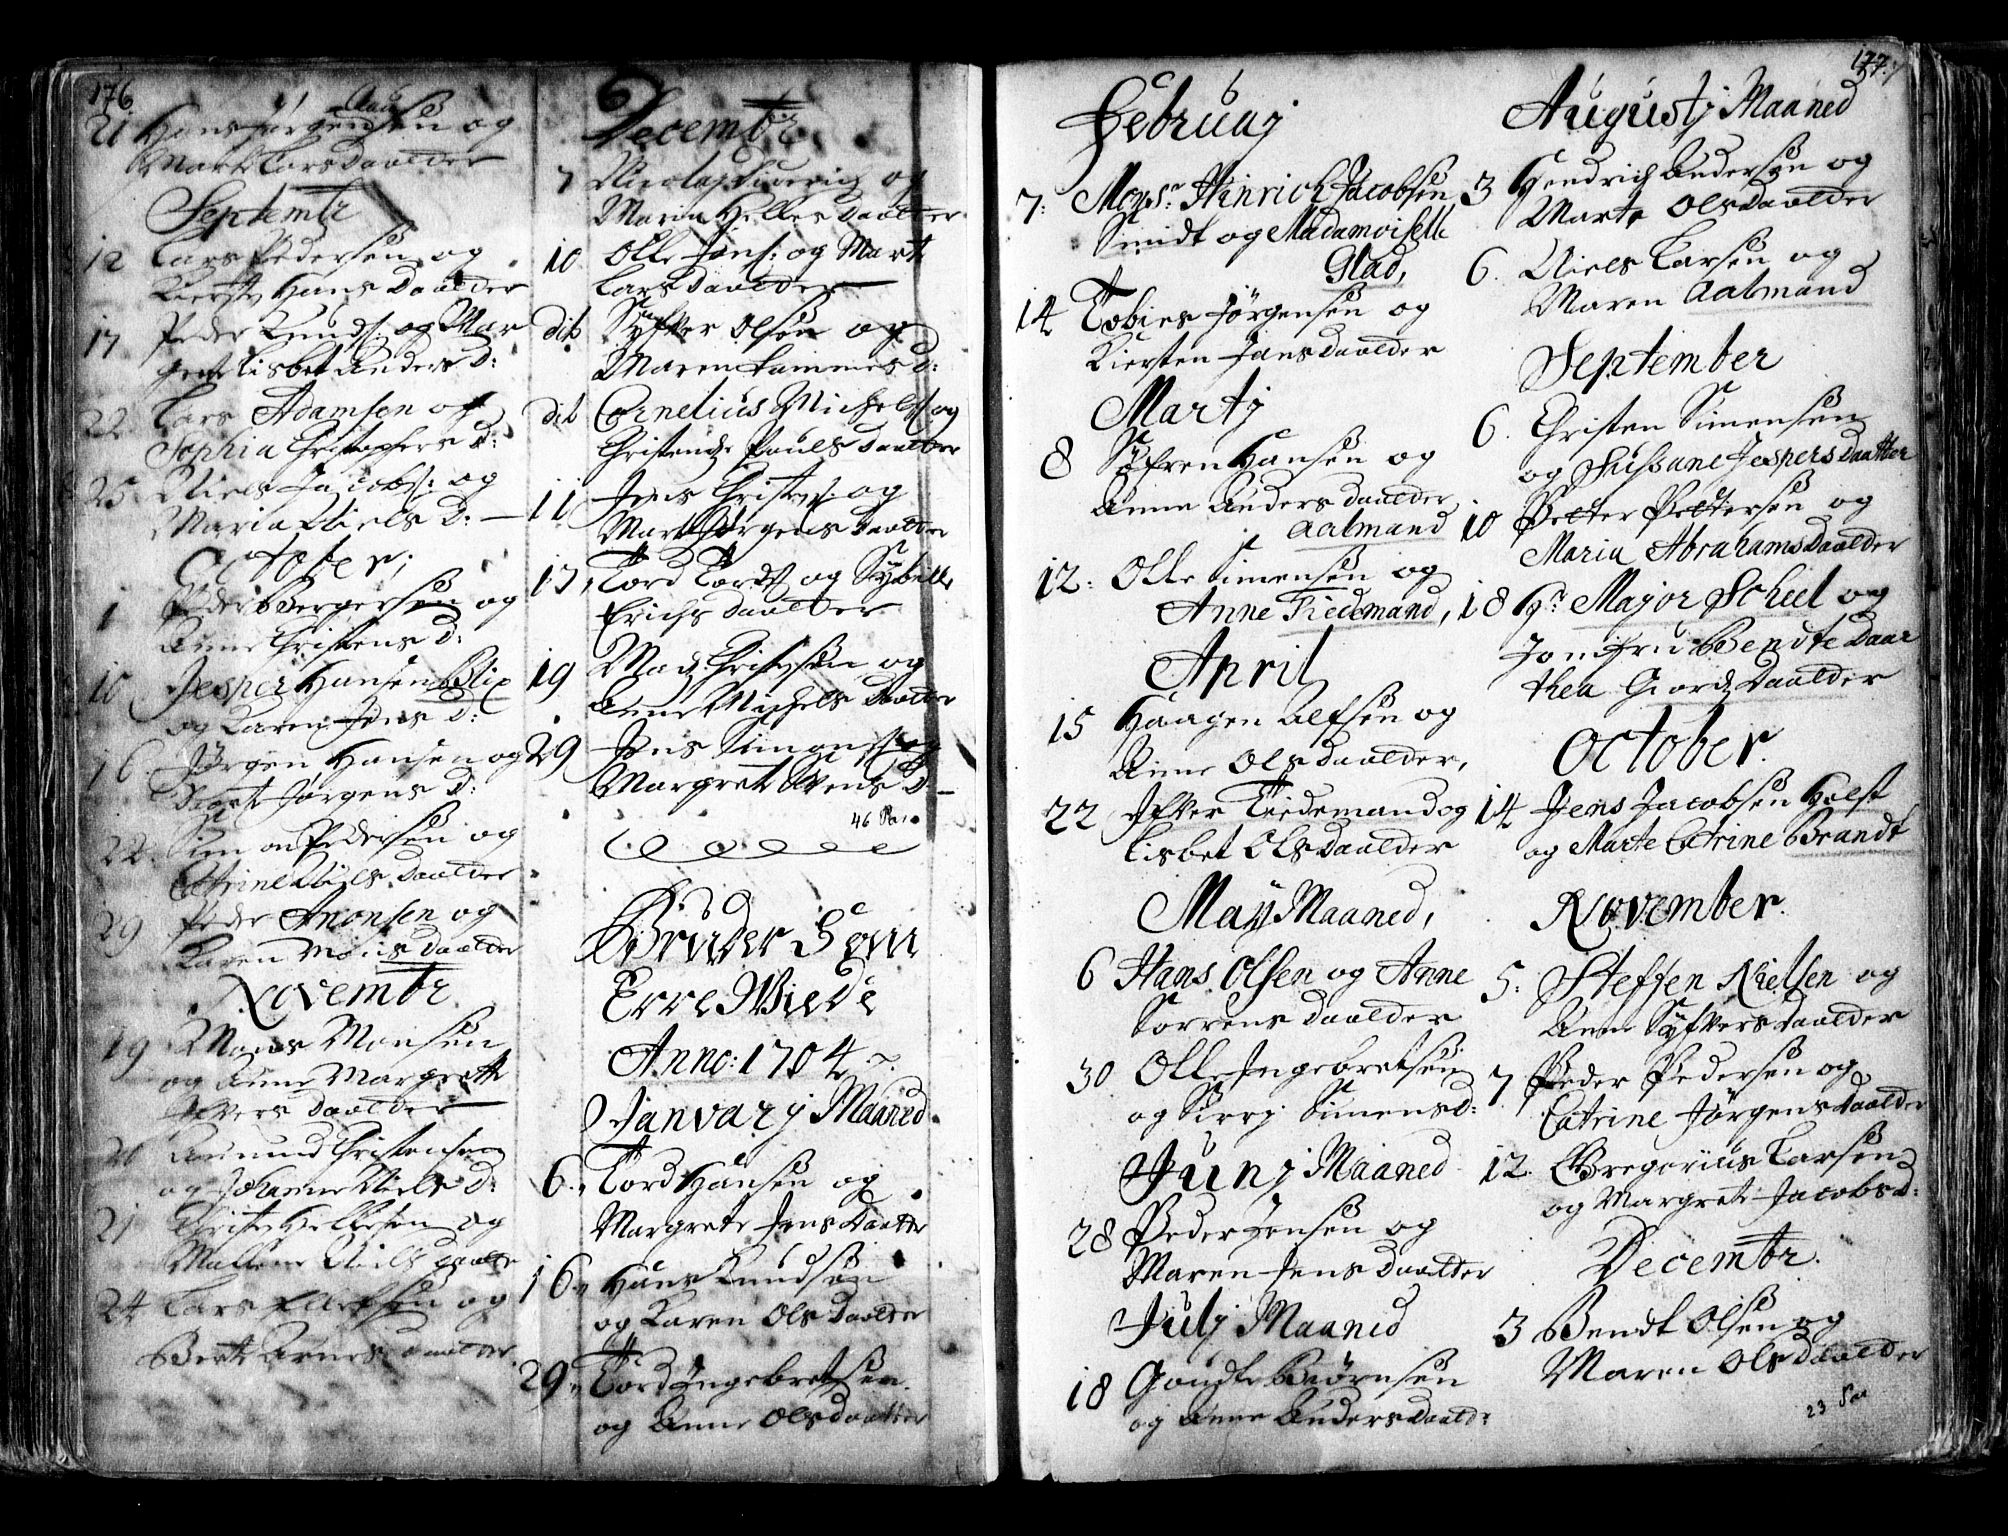 176
21 Hans Jørgensen og
Marte Larsdaatter
Septembr
12 Lars Pedersen og
Kierste Hansdaatter
17 Peder Knuds: og Mar
grete Lisbet Anders D:
22 Lars Adamsen og
Sophia Christophers D:
25 Niels Jacobs: og
Maria Niels D:
October;
1 Peder Bergersen og
Anne Christens D:
10 Jesper Hansen Blix
og Karen Jens D:
16. Jørgen Hansen og
Marte Jørgens D:
22. Simon Pedersen og
Catrine Niels Daatter
29 Peder Amonsen og
Karen Mons Daatter
Novembr
19 Mons Monsen
og Anne Margrette
Ifvers Daatter
20 Aamund Christensen
og Johanne Niels D:
21 Christen Hellesen og
Mallene Niels Daatter
24 Lars Ellefsen og
Berte Arnes Daatter
Decembr
7 Nicolaj Siverig og
Maria Helles Daatter
10 Olle Jens: og Marte
Lars Daatter
dito Syfver Olsen og
Maren Lammes D:
dito Cornelius Michels: og
Christendze Pouls Daatter
11 Jens Christens: og
Marte Jørgens Daatter
17, Tord Tords: og Sybille
Erichs Daatter
19 Mads Christensen og
Anne Michels Daatter
29 Jens Simons: og
Margrete Svens D:
46 Par
Bruder Som
Ere Wiede
Anno: 1704
Januarj Maaned
6. Tord Hansen og
Margrete Jens Daatter
16 Hans Knudsen
og Karen Ols Daatter
29 Tord Ingebretsen
og Anne Ols Daatter
177
Februarj
7: Monsr. Hinrich Jacobsen
Smidt og Madamoiselle
Glad,
14 Tobies Jørgensen og
Kiersten Jans Daatter
Martj
8 Søfren Hansen og
Anne Anders Daatter
Aalmand
12: Olle Simensen og
Anne Tiedemand,
April
15 Haagen Alfsen og
Anne Ols Daatter,
22 Ifver Tiedemand og
Lisbet Ols Daatter
May Maaned,
6 Hans Olsen og Anne
Sorrens Daatter
30 Olle Ingebretsen
og Sirrj Simens D:
Junj Maaned
28 Peder Jensen og
Maren Jens Daatter
Julj Maaned
18 Goudte Biørnsen
og Anne Anders Daatt:
Augustj Maaned
3 Hendrich Andersen og
Marte Ols Daatter
6. Niels Larsen og
Maren Aalmand
September
6. Christen Simensen
og Sussane Jespers Daatter
10 Petter Pettersen og
Maria Abrahams Daatter
18 Hr. Major Scheel og
Jomfru Bendte Daar
thea Giordz Daatter
October.
14 Jens Jacobsen Holst
og Marte Catrine Brandt
November.
5. Steffen Nielsen og
Anne Syfvers Daatter
7 Peder Pedersen og
Catrine Jørgens Daatter
12. Gregorius Larsen
og Margrete Jacobs D:
Decembr.
3 Bendt Olsen og
Maren Ols Daatter
23 Par